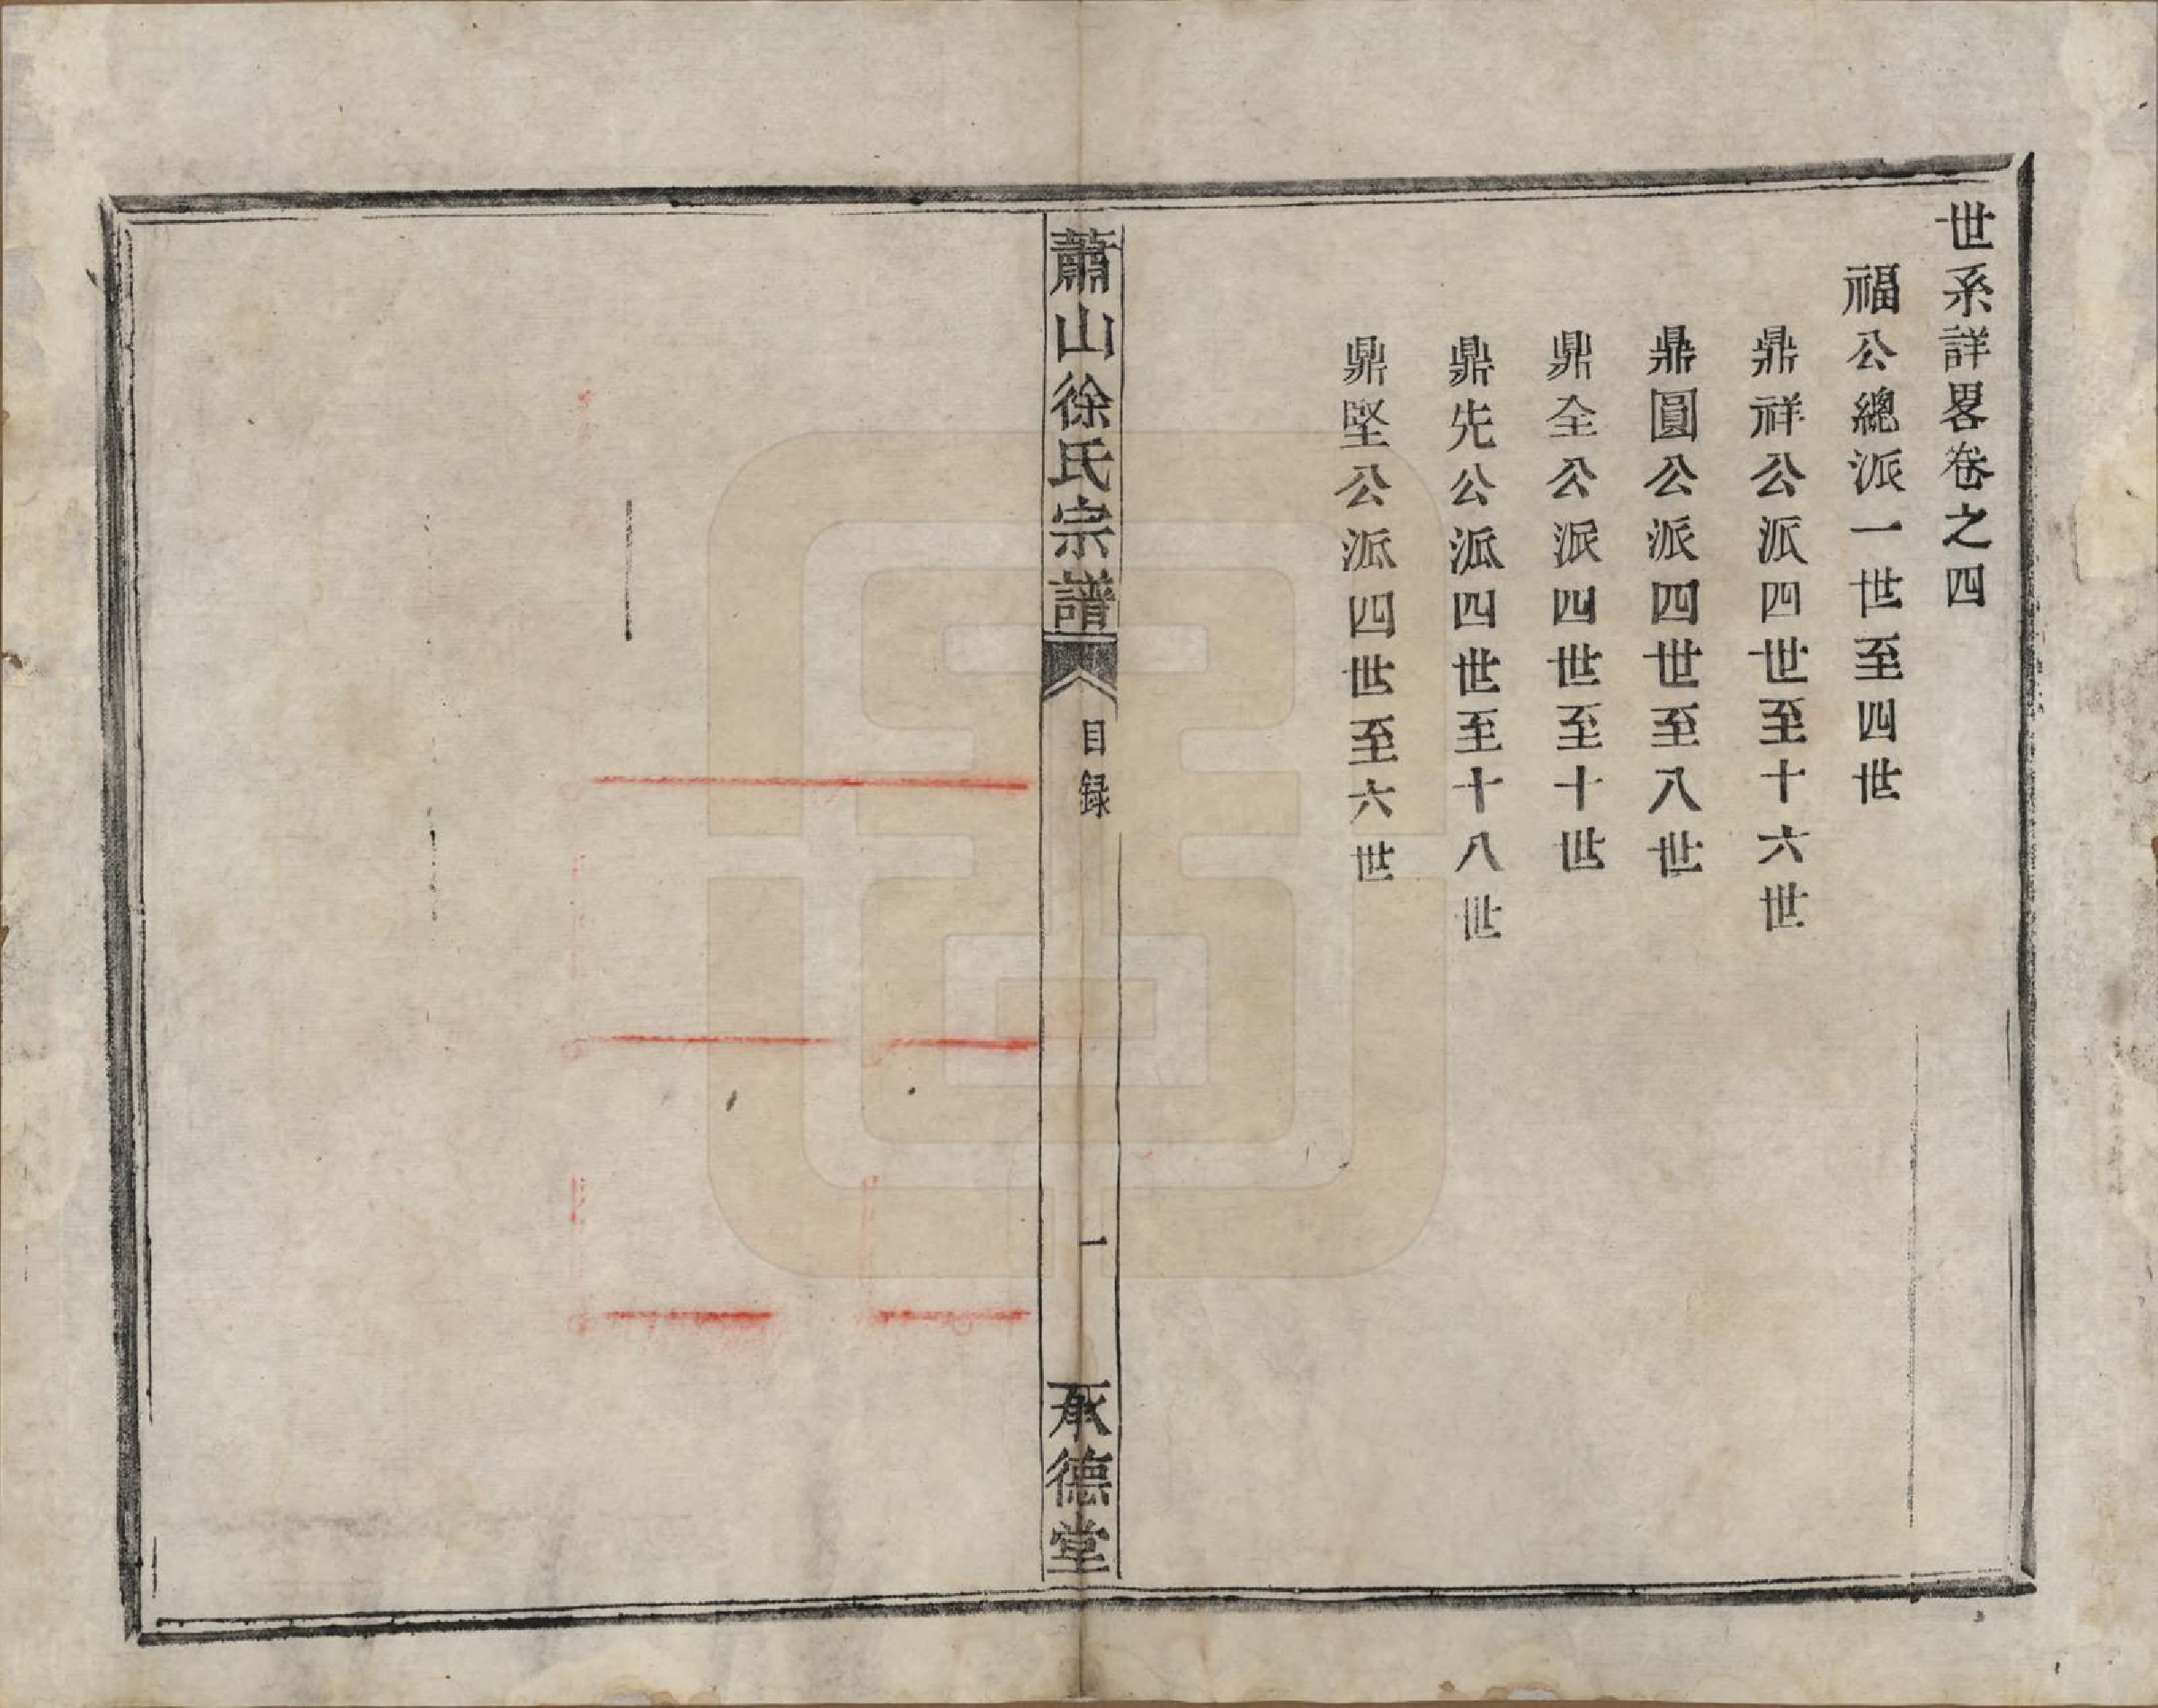 世系詳畧卷之四
福公總派一世至四世
鼎祥公派四世至十六世
鼎圓公派四世至八世
鼎全公派四世至十世
鼎先公派四世至十八世
鼎堅公派四世至六世
蕭山徐氏宗譜
目録
一
承德堂